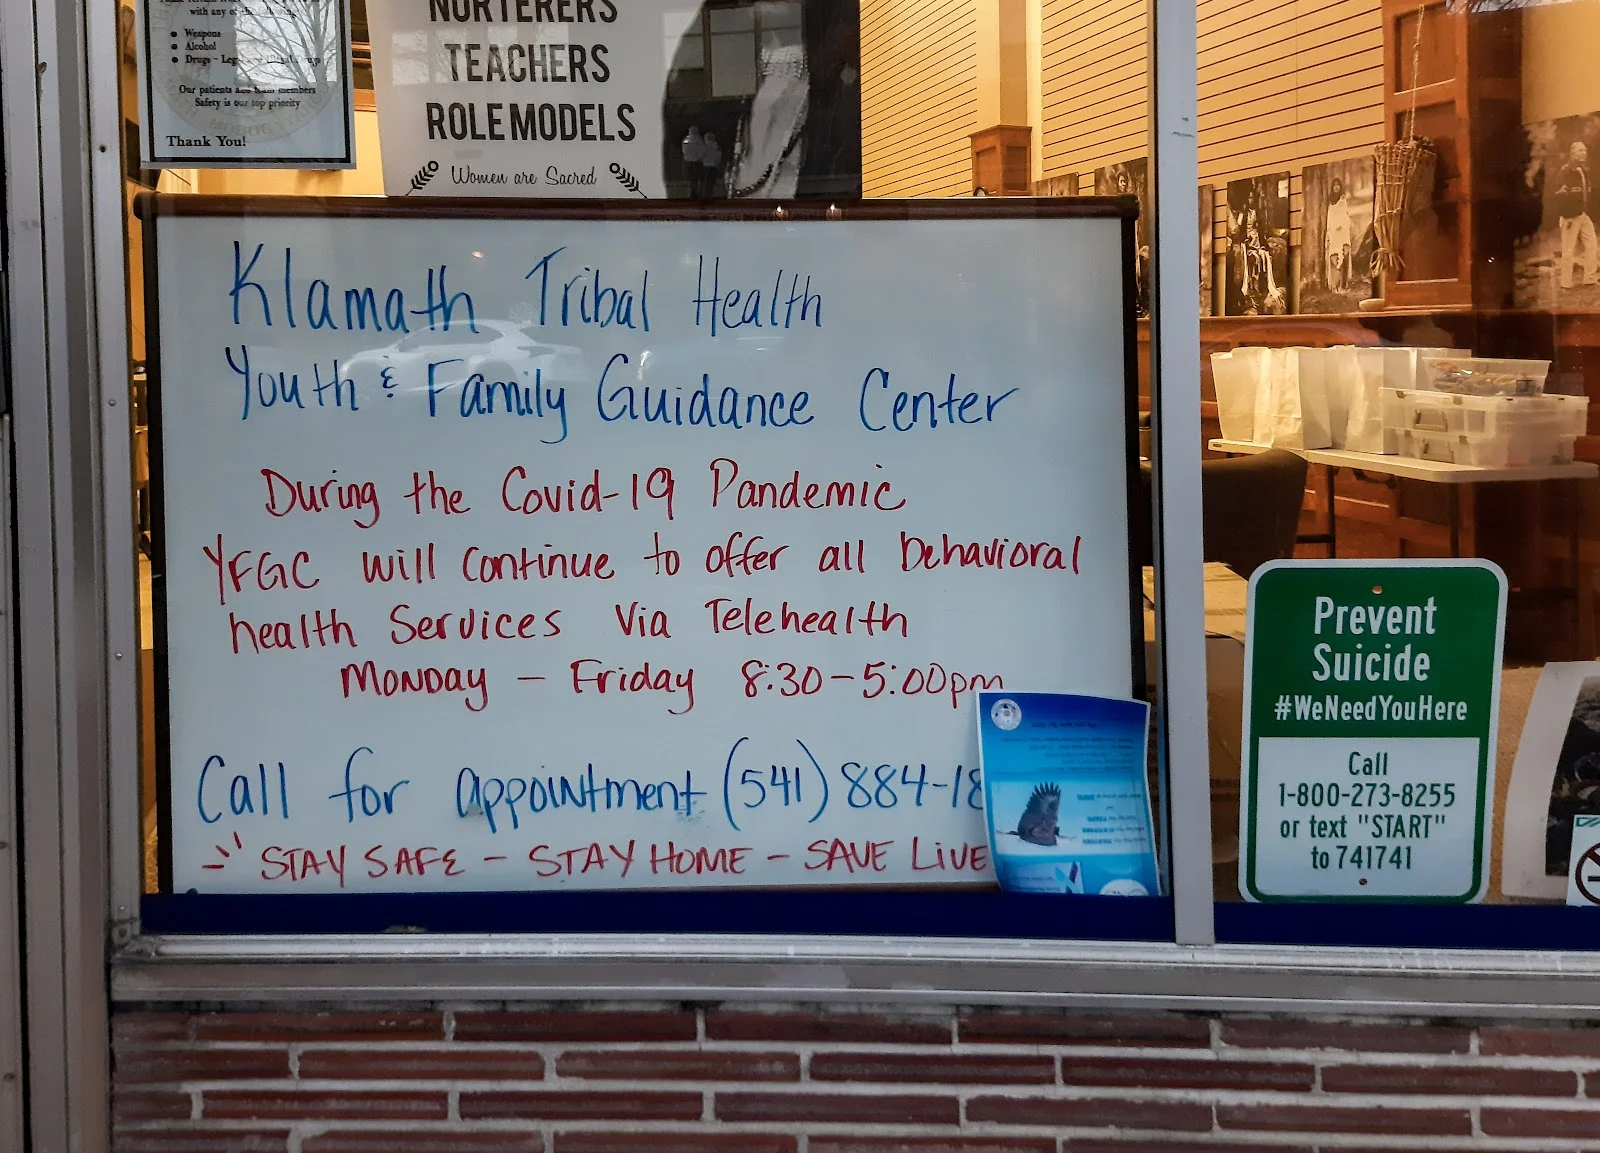 with any of
Weapons
Alcohol
Drugs - Leg
Our patients and team members
Safety is our top priority
Thank You!
NURTERERS
TEACHERS
ROLE MODELS
Women are Sacred
Klamath Tribal Health
Youth & Family Guidance Center
During the Covid-19 Pandemic
YFGC will continue to offer all behavioral
health Services Via Telehealth
Monday - Friday 8:30-5:00pm
Call for appointment (541) 884-18
STAY SAFE - STAY HOME - SAVE LIVE
Prevent
Suicide
#WeNeedYouHere
Call
1-800-273-8255
or text "START"
to 741741